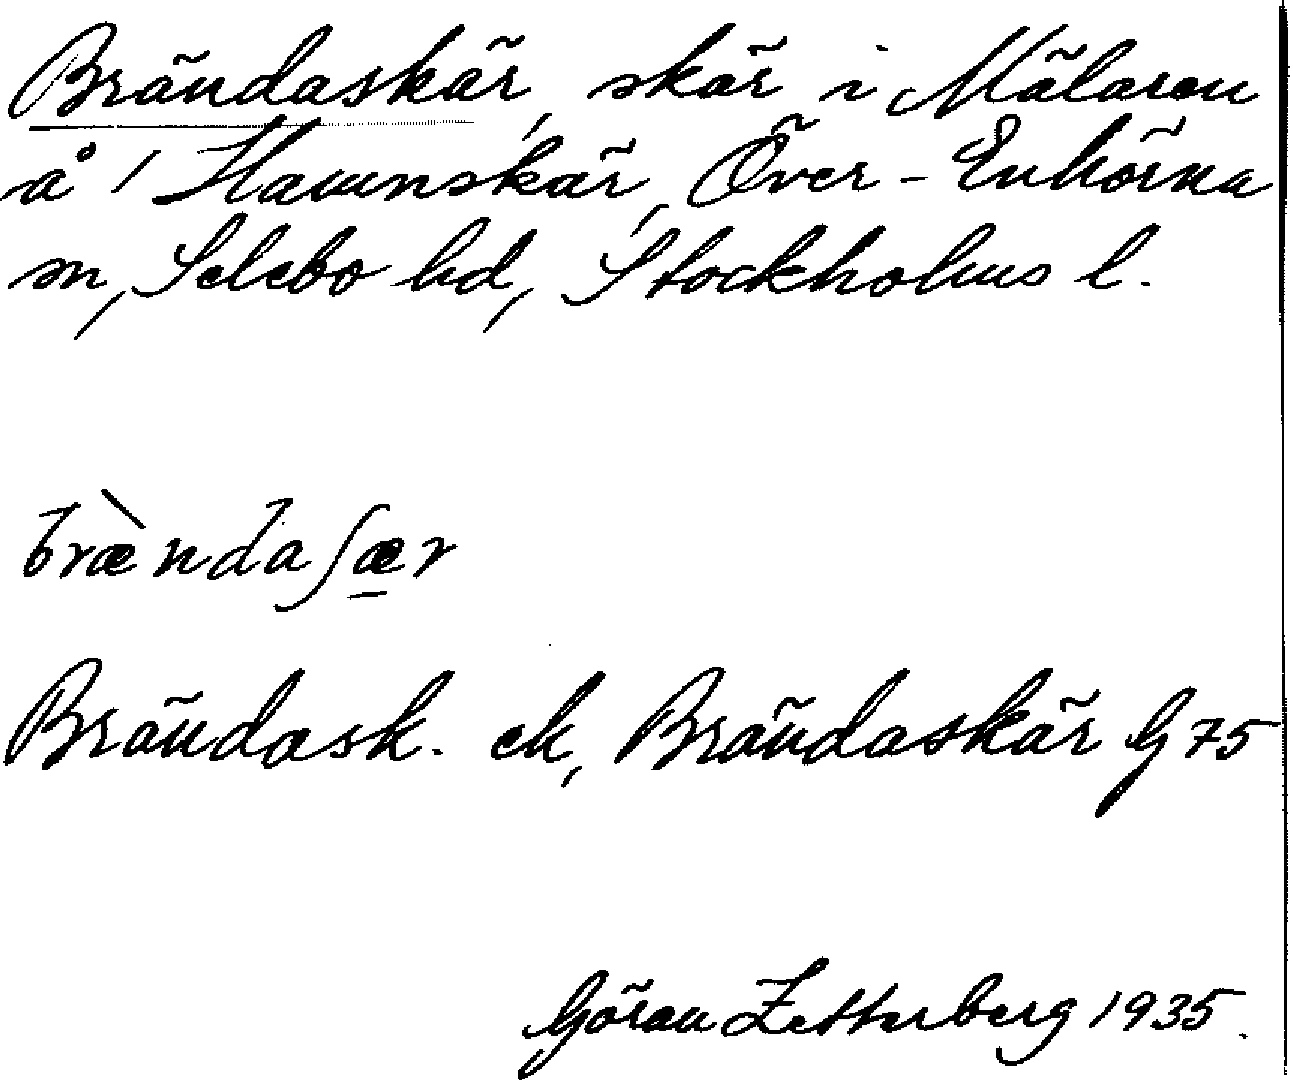 Brändaskär, skär i Mälaren
å / Hamnskär, Över-Enhörna
sn, Selebo hd, Stockholms l.
bræ̀ndaʃæ̱r
Brändask. ek, Brändaskär G 75
Göran Zetterberg 1935.